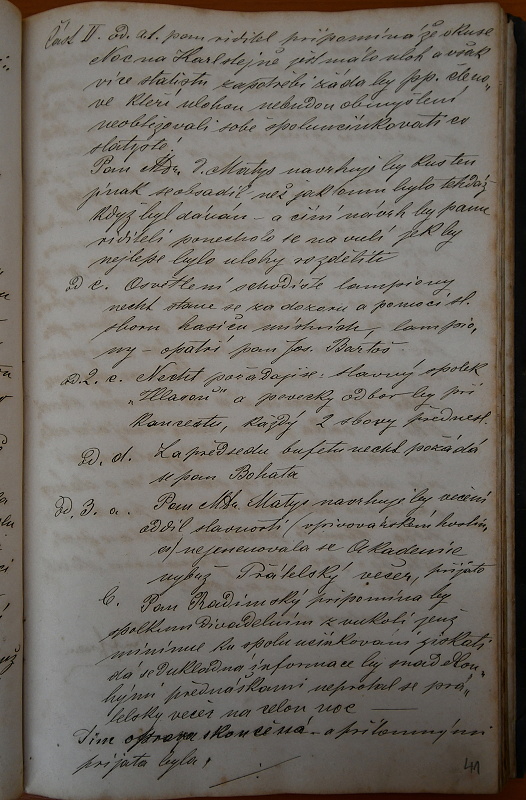 Část II. od. a1. pan riditel připomíná že v kuse
Noc na Karlštejně jest málo uloh a však
více statistu zapotřebí žádá by pp. členo-
vé kteří ulohou nebudou obmyšleni
neobtěžovali sobě spoluucinkovati co
statisté.
Pan MDr. J. Matys navrhuje by kus ten
jinak se obsadil, než jak tomu bylo tehdáž
když byl dáván - a činí návrh by panu
riditeli ponechalo se na vuli jak by
nejlépe bylo ulohy rozděliti
od c. Osvětlení schodiště lampiony
nechť stane se za dozoru a pomoci sl.
sboru hasičů místních, lampio-
ny - opatří pan Jos. Bartoš
od. 2. c. Nechť požádají se: slavný spolek
"Hlasoň" a pěvecký odbor by při
koncertu, každý 2 sbory přednesl.
od. d. Za předsedu bufetu nechť požádá
se pan Bohata
od 3. a. Pan MDr. Matys navrhuje by večerní
oddíl slavnosti v pivovarském hostin-
ci nejmenovala se Akademie
nybrž Přátelský večer, přijato
b. Pan Radimský připomíná by
spolkum divadelním z vukolí jenž
míníme ku spoluucinkování získati
dá se dukladná informace by snad dlou-
hými přednáškami neprotáhl se přá-
telský večer na celou noc —
Tím oprava skončená - a přítomnými
prijata byla.
41